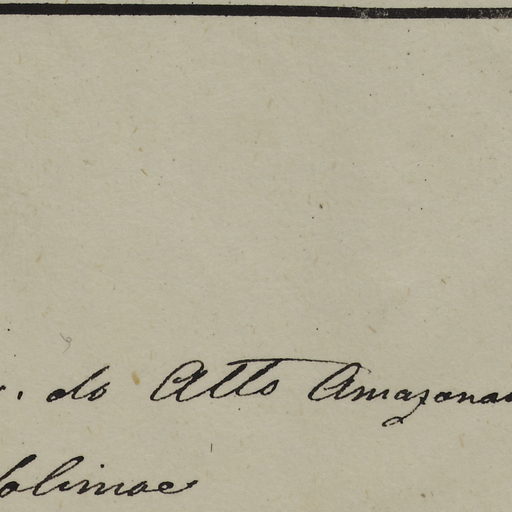 . do Atto Amazonas
Solimoe